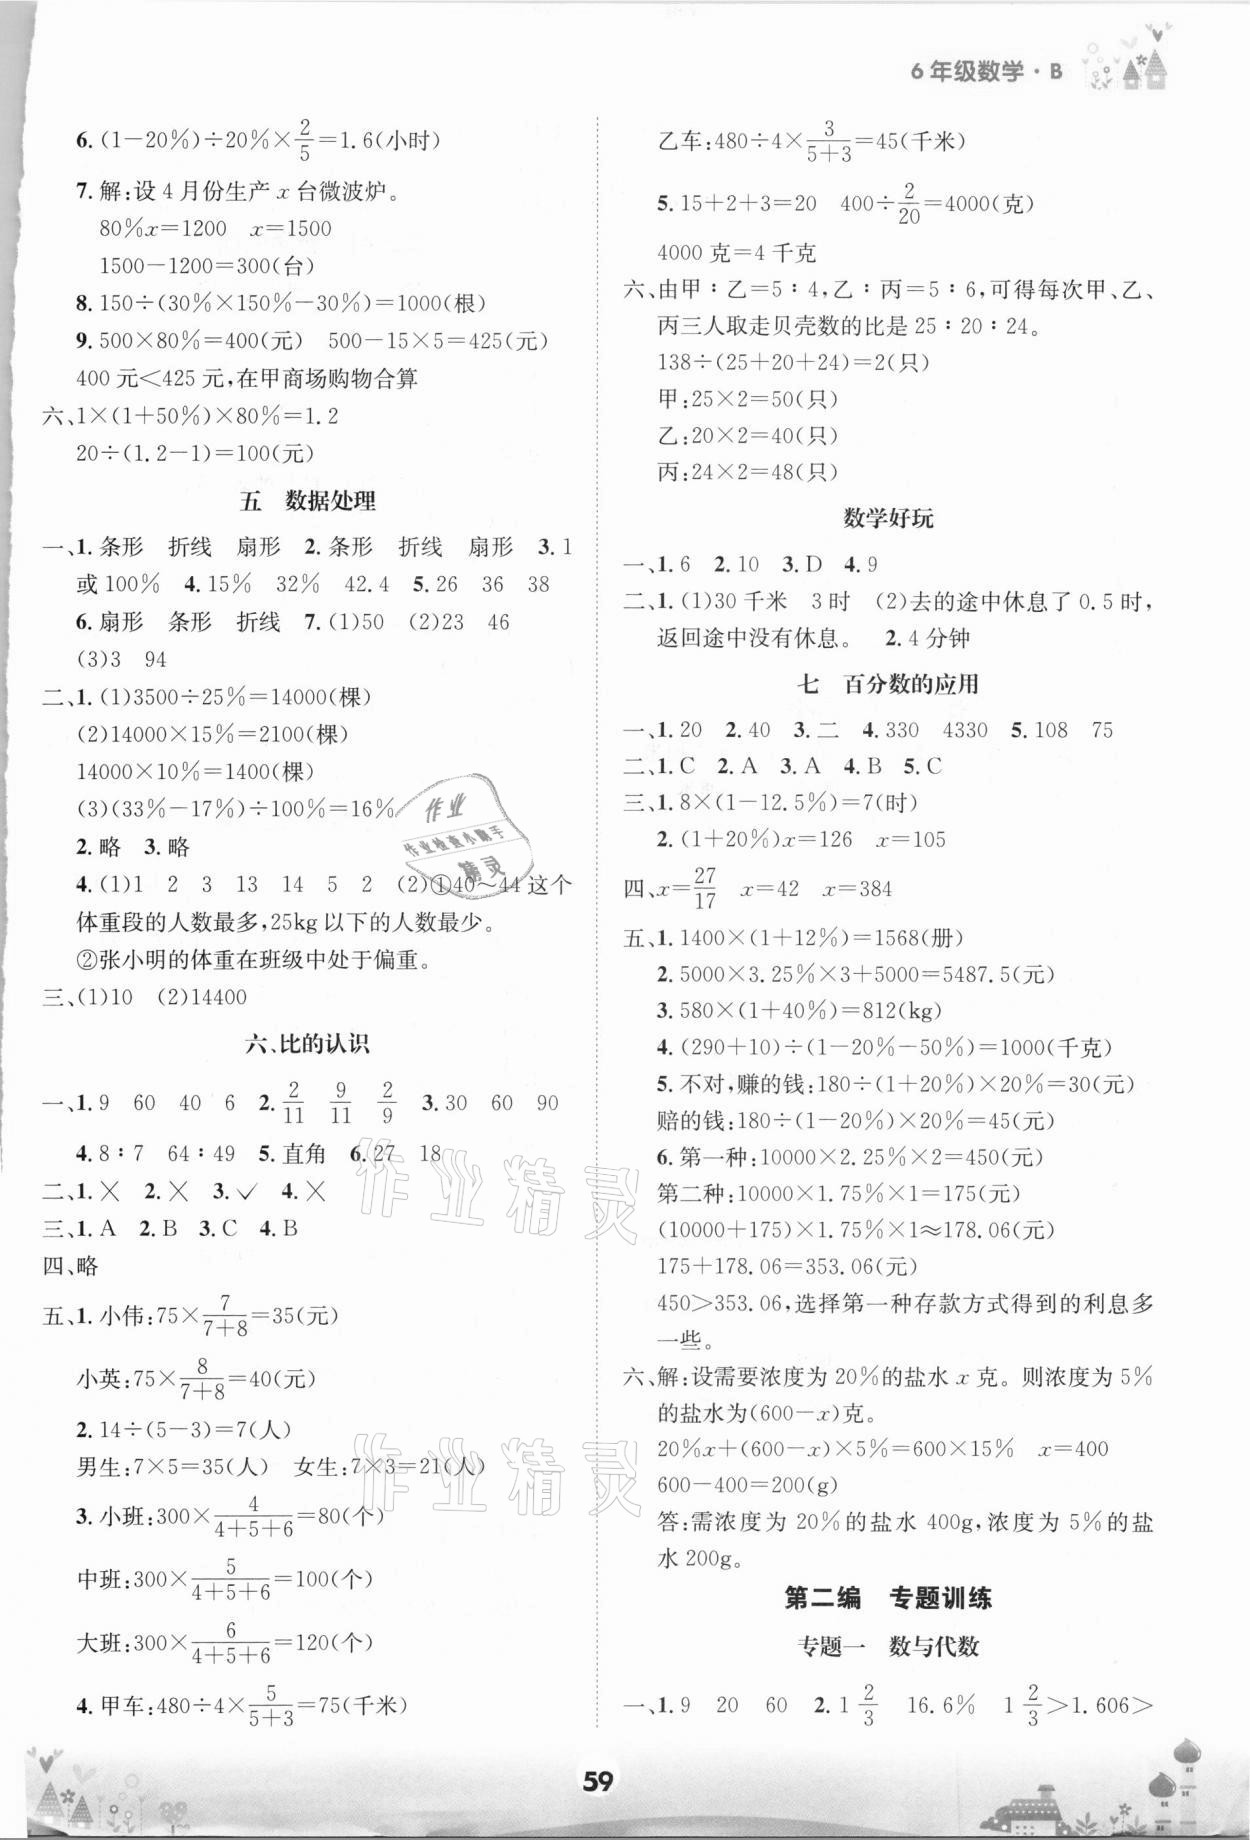 6年级数学·B
6.(1－20％)÷20％×2/5=1.6(小时)
7.解:设4月份生产x台微波炉。
80％x=1200　x=1500
1500－1200=300(台)
8.150÷(30％×150％－30％)=1000(根)
9.500×80％=400(元)　500－15×5=425(元)
400元＜425元,在甲商场购物合算
六、1×(1+50％)×80％=1.2
20÷(1.2－1)=100(元)
五　数据处理
一、1.条形　折线　扇形　2.条形　折线　扇形　3.1
或100％　4.15％　32％　42.4　5.26　36　38
6.扇形　条形　折线　7.(1)50　(2)23　46
(3)3　94
二、1.(1)3500÷25％=14000(棵)
(2)14000×15％=2100(棵)
14000×10％=1400(棵)
(3)(33％－17％)÷100％=16％
2.略　3.略
4.(1)1　2　3　13　14　5　2　(2)①40～44这个
体重段的人数最多,25kg以下的人数最少。
②张小明的体重在班级中处于偏重。
三、(1)10　(2)14400
六、比的认识
一、1.9　60　40　6　2.2/11　9/11　2/9　3.30　60　90
4.8∶7　64∶49　5.直角　6.27　18
二、1.×　2.×　3.✓　4.×
三、1.A　2.B　3.C　4.B
四、略
五、1.小伟:75×7/(7+8)=35(元)
小英:75×8/(7+8)=40(元)
2.14÷(5－3)=7(人)
男生:7×5=35(人)　女生:7×3=21(人)
3.小班:300×4/(4+5+6)=80(个)
中班:300×5/(4+5+6)=100(个)
大班:300×6/(4+5+6)=120(个)
4.甲车:480÷4×5/(5+3)=75(千米)
乙车:480÷4×3/(5+3)=45(千米)
5.15+2+3=20　400÷2/20=4000(克)
4000克=4千克
六、由甲∶乙=5∶4,乙∶丙=5∶6,可得每次甲、乙、
丙三人取走贝壳数的比是25∶20∶24。
138÷(25+20+24)=2(只)
甲:25×2=50(只)
乙:20×2=40(只)
丙:24×2=48(只)
数学好玩
一、1.6　2.10　3.D　4.9
二、1.(1)30千米　3时　(2)去的途中休息了0.5时,
返回途中没有休息。　2.4分钟
七　百分数的应用
一、1.20　2.40　3.二　4.330　4330　5.108　75
二、1.C　2.A　3.A　4.B　5.C
三、1.8×(1－12.5％)=7(时)
2.(1+20％)x=126　x=105
四、x=27/17　x=42　x=384
五、1.1400×(1+12％)=1568(册)
2.5000×3.25％×3+5000=5487.5(元)
3.580×(1+40％)=812(kg)
4.(290+10)÷(1－20％－50％)=1000(千克)
5.不对,赚的钱:180÷(1+20％)×20％=30(元)
赔的钱:180÷(1－20％)×20％=45(元)
6.第一种:10000×2.25％×2=450(元)
第二种:10000×1.75％×1=175(元)
(10000+175)×1.75％×1≈178.06(元)
175+178.06=353.06(元)
450＞353.06,选择第一种存款方式得到的利息多
一些。
六、解:设需要浓度为20％的盐水x克。则浓度为5％
的盐水为(600－x)克。
20％x+(600－x)×5％=600×15％　x=400
600－400=200(g)
答:需浓度为20％的盐水400g,浓度为5％的盐
水200g。
第二编　专题训练
专题一　数与代数
一、1.9　20　60　2.1 2/3　16.6％　1 2/3＞1.606＞
59
作业
作业检查小助手
精灵
作业精灵
作业精灵